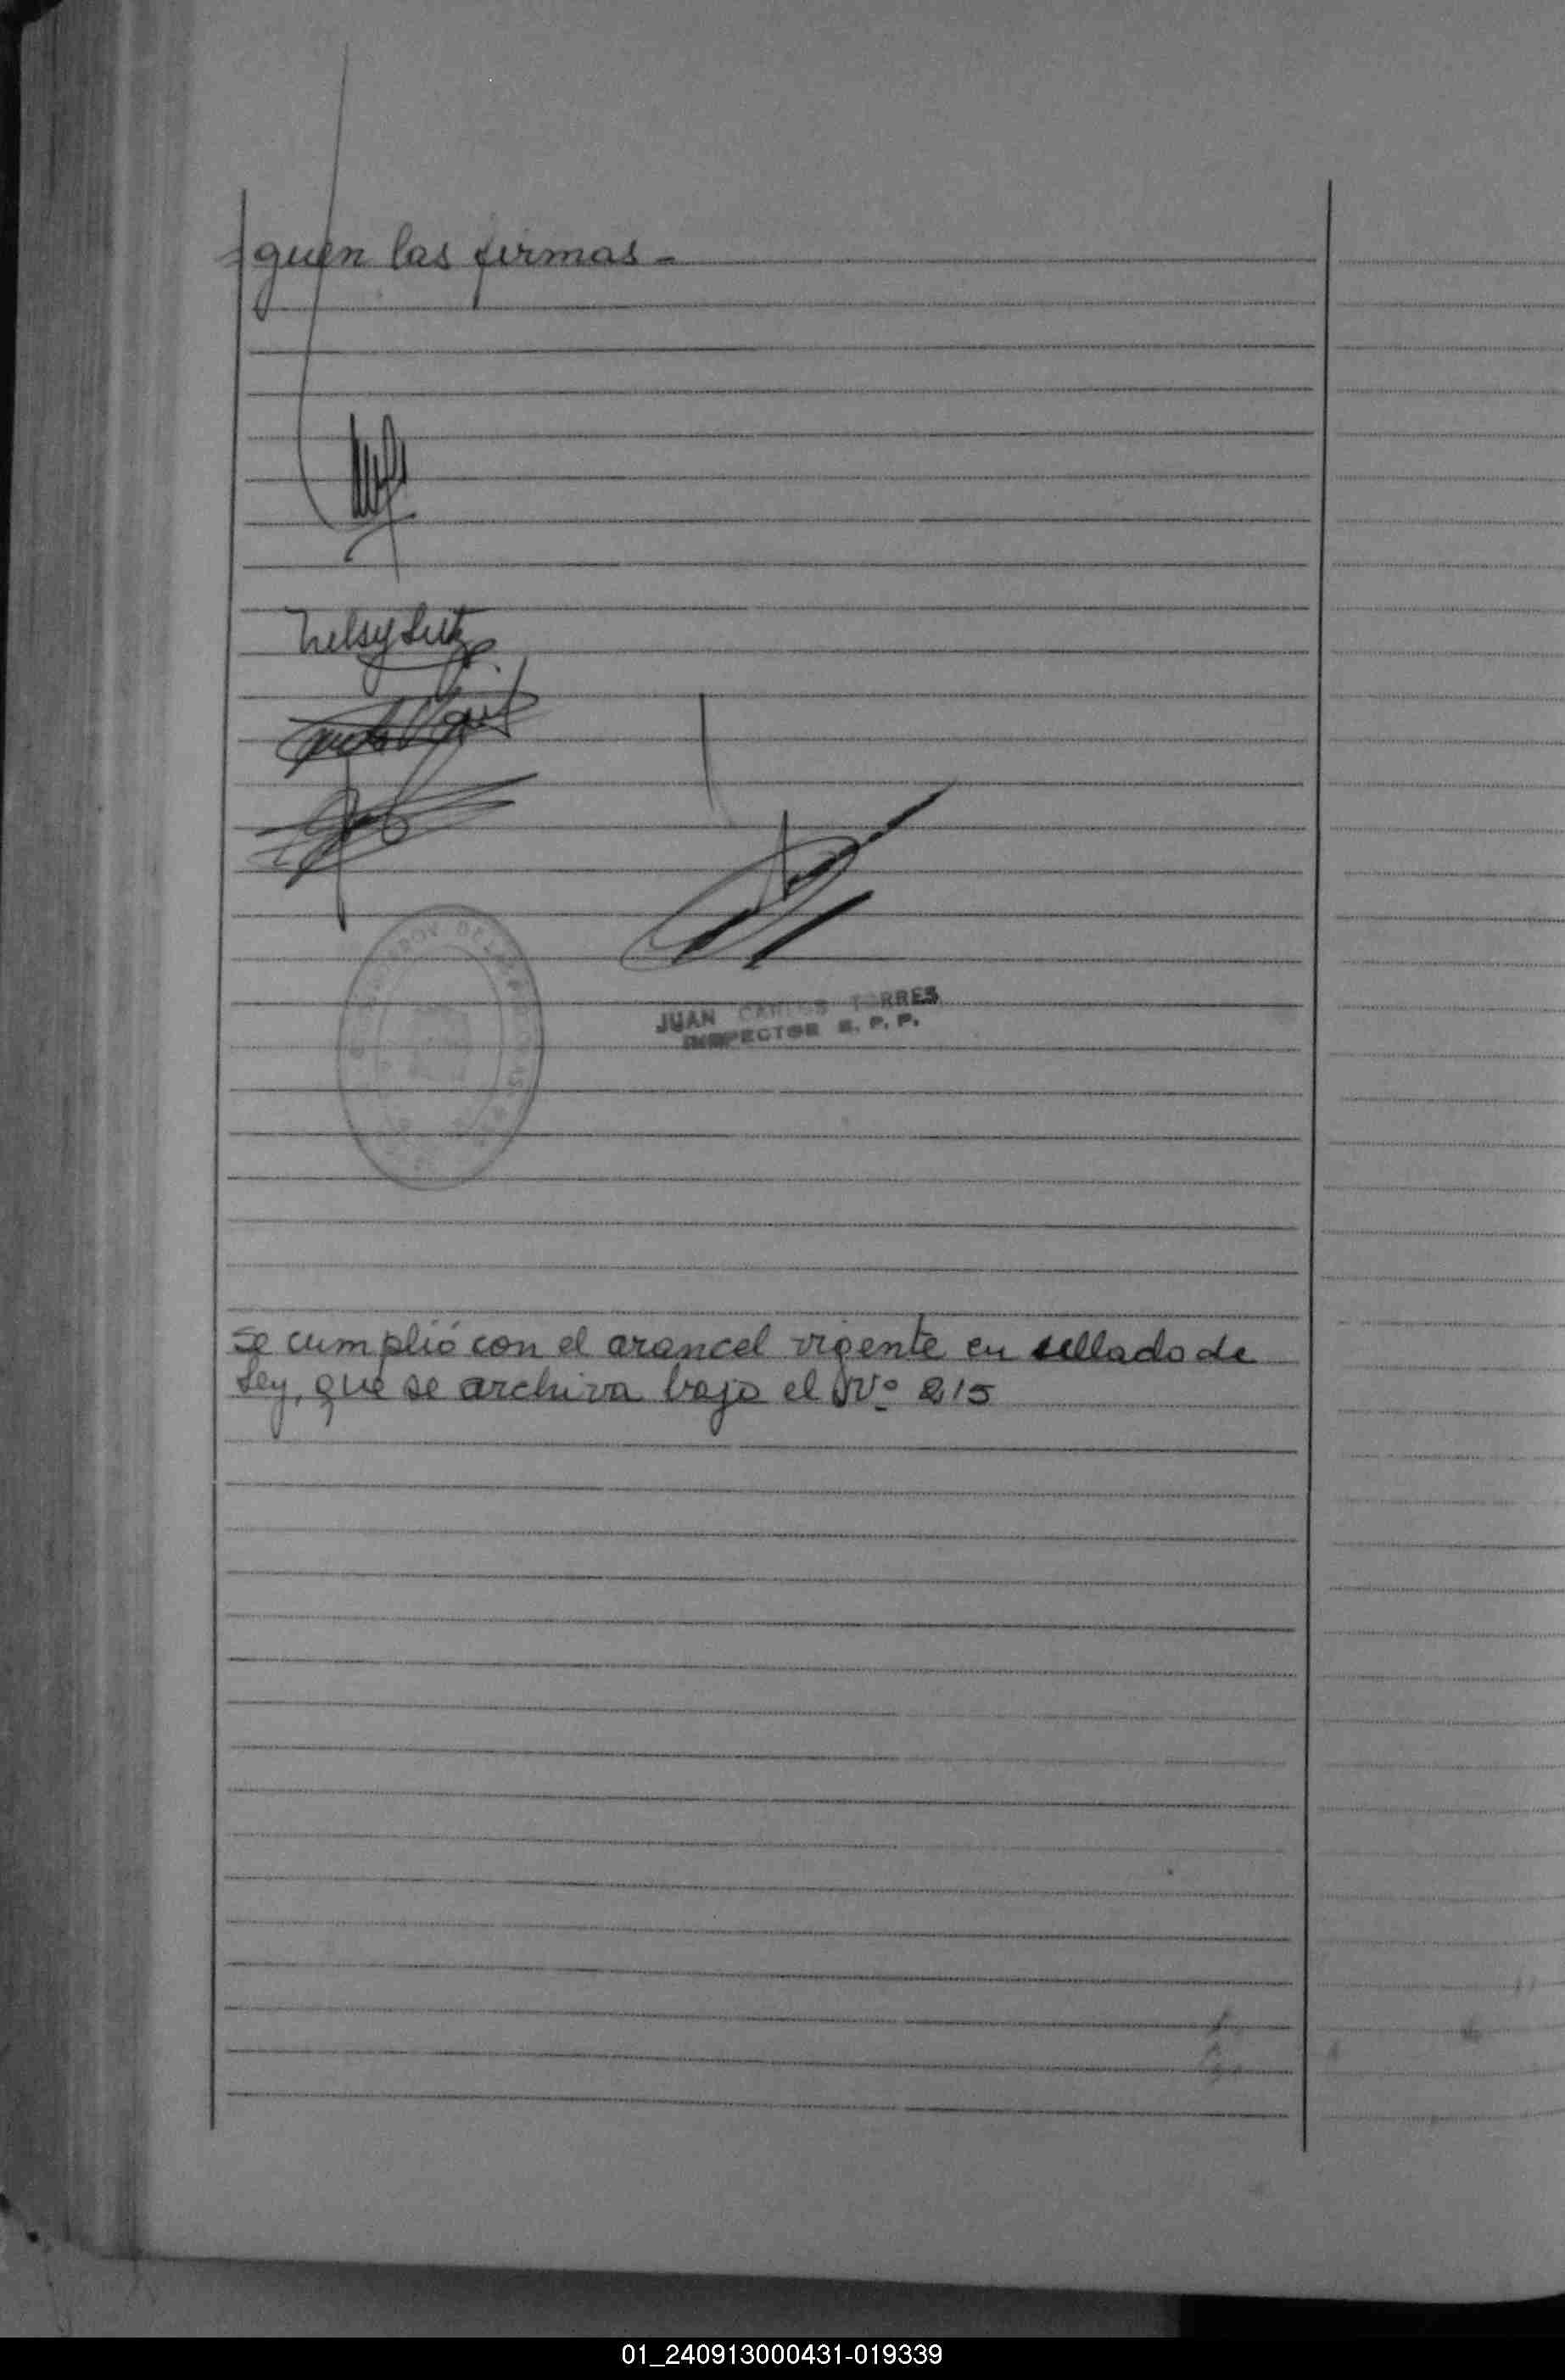 guen las firmas -
Nelsy Lutz
JUAN CARLOS TORRES
INSPECTOR E. P. P.
Se cumplió con el arancel vigente en sellado de
Ley, que se archiva bajo el Nº 215
01_240913000431-019339